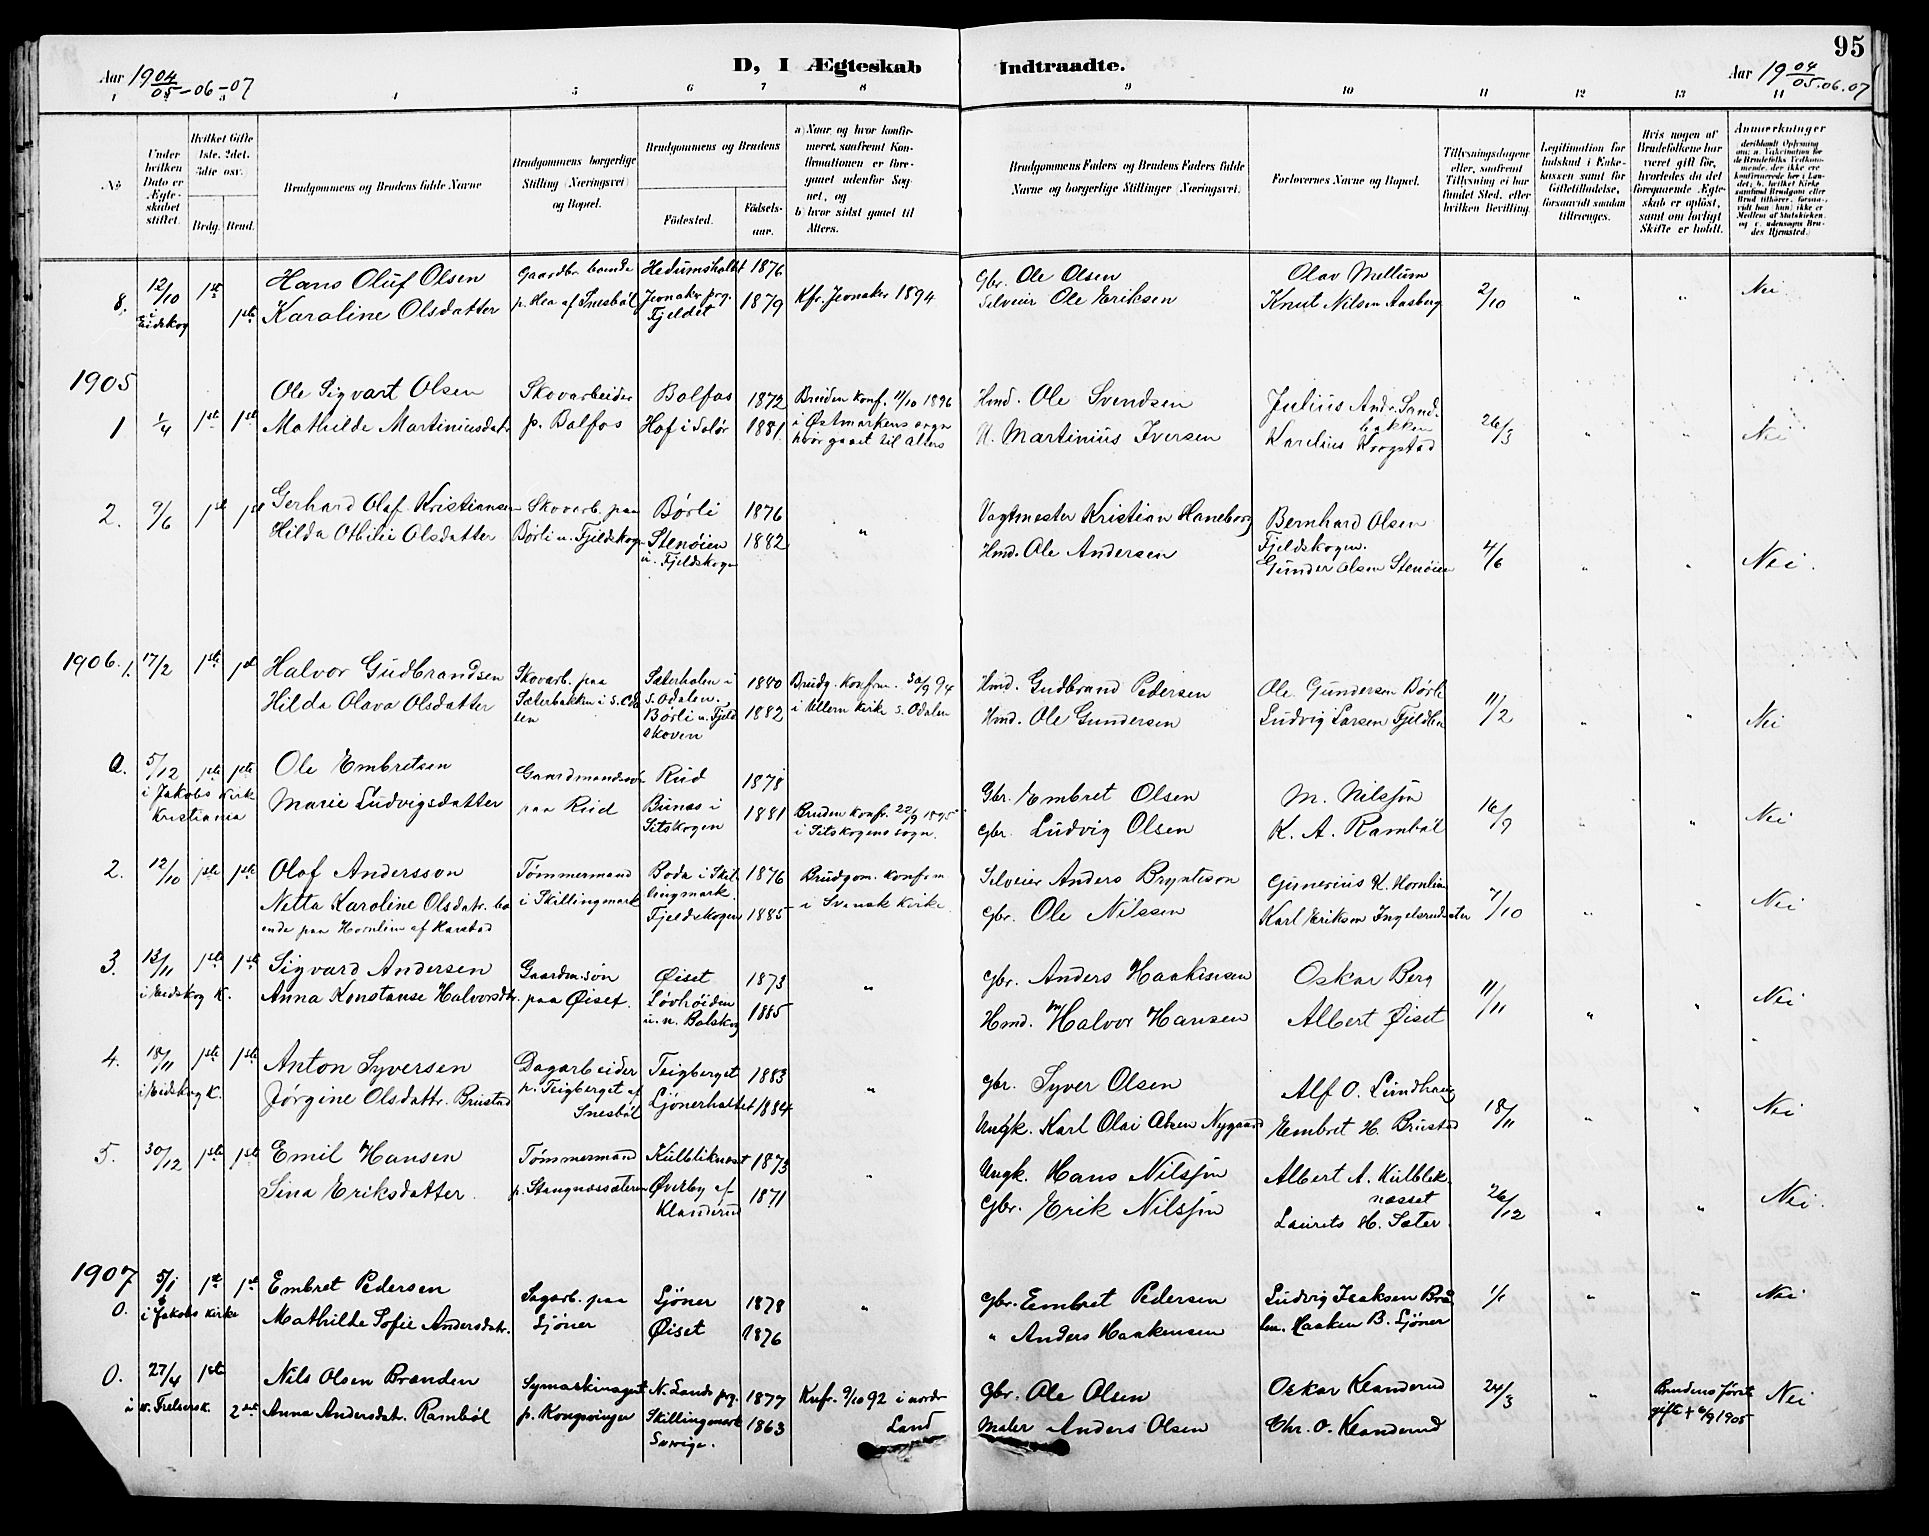 95
Aar 1904/05-06-07
D, I Ægteskab Indtraadte.
Aar 1904/05.06.07
1 3 4 5 6 7 8 9 10 11 12 13 14
No
Under hvilken Dato er Ægteskabet stiftet.
Hvilket Gifte 1ste, 2det, 3die osv.
Brdg. Brud.
Brudgommens og Brudens fulde Navne
Brudgommens borgerlige Stilling (Næringsvei) og Bopæl.
Brudgommens og Brudens
Fødested. Fødselsaar.
a) Naar og hvor konfirmeret, samfremt Konfirmationen er foregaaet udenfor Sognet, og
b) hvor sidst gaaet til Alters.
Brudgommens Faders og Brudens Faders fulde Navne og borgerlige Stillinger (Næringsvei).
Forlovernes Navne og Bopæl.
Tillysningsdagene eller, samfremt Tillysning ei har fundet Sted, efter hvilken Bevilling.
Legitimation for Indskud i Enkekassen samt for Giftetilladelse, forsaavidt saadan tiltrænges.
Hvis nogen af Brudefolkene har været gift før, hvorledes da det foregaaende Ægteskab er opløst, samt om lovligt Skifte er holdt.
Anmærkninger
8. 12/10 i Eidskog 1ste 1ste
Hans Oluf Olsen
Karoline Olsdatter
Gaardbr. boende
p. Hea af Snesbøl
Hedumsholtet 1876
Jevnaker prg. Fjeldet 1879
Kfr. Jevnaker 1894
Gbr. Ole Olsen
Selveier Ole Eriksen
Olav Mellum
Knut Nilsen Aasberg
2/10 " " Nei
1905
1 1/4 1ste 1ste
Ole Sigvart Olsen
Mathilde Martiniusdatr
Skovarbeider
p. Bolfos
Bolfos 1872
Hof i Solør 1881
Bruden konf. 11/10 1896
i Østmarkens sogn
hvor gaaet til alters
Hmd. Ole Svendsen
Martinius Iversen
Julius Andr. Sandbakken
Karelius Kongstad
26/3 " " Nei
2. 9/6 1ste 1ste
Gerhard Olaf Kristiansen
Hilda Othilie Olsdatter
Skovarb. paa
Børli u. Fjeldskogn
Børli 1876
Stenøien 1882
u. Fjeldskogn
"
Vagtmester Kristian Haneborg
Hmd. Ole Andersen
Bernhard Olsen
Fjeldskogen.
Gunder Olsen Stenøien
4/6 " " Nei.
1906. 1. 17/2 1ste 1ste
Halvor Gudbrandsen
Hilda Olava Olsdatter
Skovarb. paa
Sæterbakken i S. Odalen
Sæterhalen i 1880
S. Odalen.
Børli u. Fjeldskoven 1882
Brudg. Konfrm. 30/9 94
i Ullern Kirke S. Odalen
Hmd. Gudbrand Pedersen
Hmd. Ole Gundersen
Ole Gundersen Børli
Ludvig Larsen Fjeldbu
11/2 " " Nei
a. 5/12 1ste 1ste
i Jakobs Kirk Kristiania
Ole Embretsen
Marie Ludvigsdatter
Gaardmandssøn
paa Rud
Rud 1878
Bunæs i Setskogen 1881
Bruden Konf. 22/9 1895
i Setskogens sogn.
Gbr. Embret Olsen
Gbr. Ludvig Olsen
M. Nilsen
K. A. Rambøl
16/9 " " Nei
2. 12/10 1ste 1ste
Olof Andersson
Netta Karoline Olsdatr. boende paa Hornlien af Harstad
Tømmermand
i Skillingmark
Boda i Skillingmark 1876
Fjeldskogen 1885
Brudgom. Konfrm
i Svensk Kirke
Selveier Anders Brynteson
Gbr. Ole Nilssen
Gunerius K. Hornlien
Karl Eriksen Ingelsrudsæter
7/10 " " Nei
3. 13/11 1ste 1ste
i Eidskog K.
Sigvard Andersen
Anna Konstanse Halvorsdtr.
Gaardm. søn
paa Øiset.
Øiset 1873
Løvhøiden 1885
u. n. Bolskog
"
Gbr. Anders Haakensen
Hmd. Halvor Hansen
Oskar Berg
Albert Øiset
11/11 " " Nei
4. 18/11 1ste 1ste
i Eidskog K.
Anton Syversen
Jørgine Olsdattr. Brustad
Dagarbeider
p. Teigberget af Snesbøl
Teigberget 1883
Ljønerholtet 1884
"
Gbr. Syver Olsen
Ungk. Karl Olai Olsen Nygaard
Alf O. Lundhaug
Embret H. Brustad
18/11 " " Nei
5. 30/12 1ste 1ste
Emil Hansen
Sina Eriksdatter.
Tømmermand
p. Stangnæssæteren
Kulbliknæset 1873
Øverby af Klanderud 1871
"
Ungk. Hans Nilsen
Gbr. Erik Nilsen
Albert A. Kulbliknæsset
Laurits H. Sæter
26/12 " " Nei.
1907
0. 5/1 1ste 1ste
i Jakobs Kirke
Embret Pedersen
Mathilde Sofie Andersdatr.
Sagarb. paa
Ljøner
Ljøner 1878
Øiset 1876
"
Gbr. Embret Pedersen
" Anders Haakensen
Ludvig Isaksen
Haaken B. Ljøner
1/1 " " Nei
0. 27/4 1ste 2det
Nils Olsen Branden
Anna Andersdat. Rambøl
Symaskinagent
p. Kongsvinger
N. Lands prg. 1877
Skillingmark Sverige. 1863
Knfr. 9/10 92 i nordr Land
Gbr. Ole Olsen
Maler Anders Olsen
Oskar Klanderud
Chr. O. Klanderud
24/3 "
Brudens første
gifte + 6/9 1905
Nei